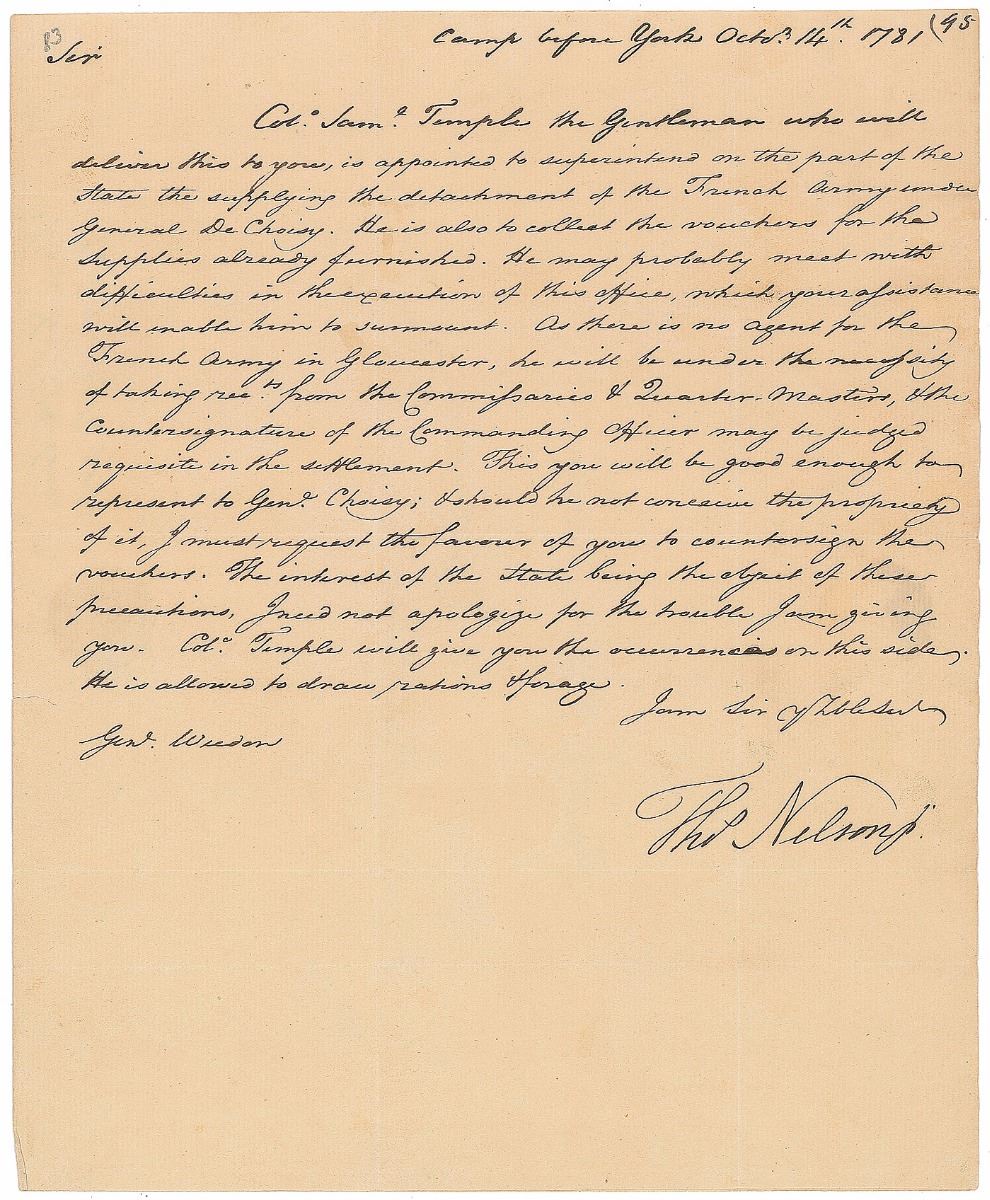 Camp before York Octo.r 14th. 1781 (95
83
Sir
Col.o Sam.l Temple the Gentleman who will
deliver this to you, is appointed to superintend on the part of the
State the supplying the detachment of the French Army under
General De Choisy. He is also to collect the vouchers for the
supplies already furnished. He may probably meet with
difficulties in the execution of this office, which, your assistance
will enable him to surmount. As there is no agent for the
French Army in Gloucester, he will be under the necessity
of taking rec.ts from the Commissaries & Quarter-Masters, & the
Countersignature of the Commanding Officer may be judged
requisite in the settlement. This you will be good enough to
represent to Gen.l Choisy; & should he not conceive the propriety
of it, I must request the favour of you to countersign the
vouchers. The interest of the State being the object of these
precautions, I need not apologize for the trouble I am giving
you. Col.o Temple will give you the occurrences on this side.
He is allowed to draw rations & forage.
I am Sir y.r Hble Serv.t
Gen.l Weedon
Tho.s Nelson jr.